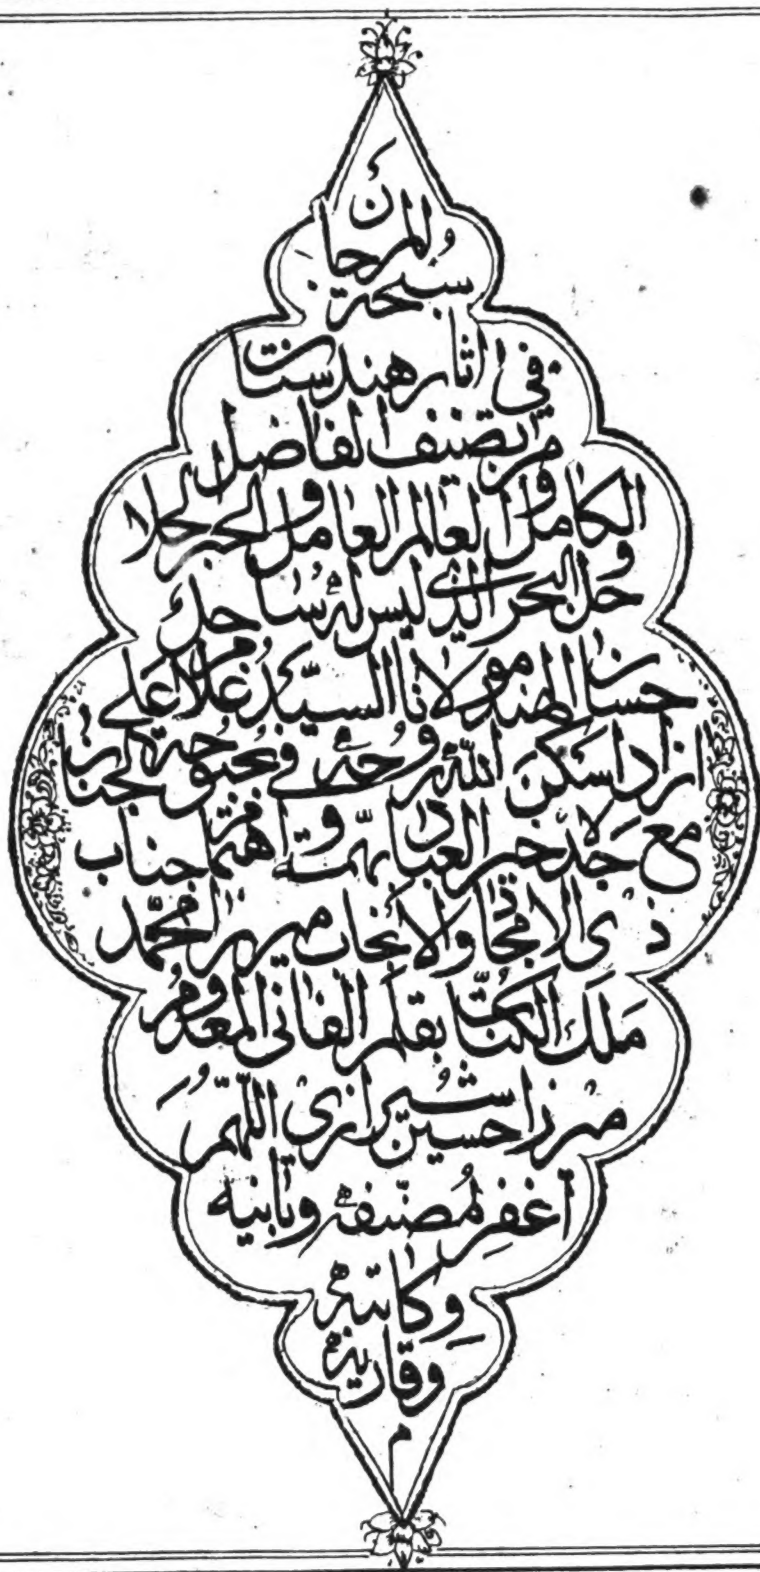 سبحة المرجان
في اثار هندستان
من تصنيف الفاضل
الكامل والعالم العامل والحبر الحلا
حل والبحر الذي ليس له ساحل
حسان الهند مولانا السيد غلام علي
ازاد اسكن الله روحه في بحبوحة الجنان
مع جده خير العباد وتم باهتمام جناب
ذي الافتخار والانتخاب ميرزا محمد
ملك الكتاب بقلم الفاني المعدوم
ميرزا حسين شيرازي اللهم
اغفر لمصنفه وبانيه
وكاتبه
وقاريه
م